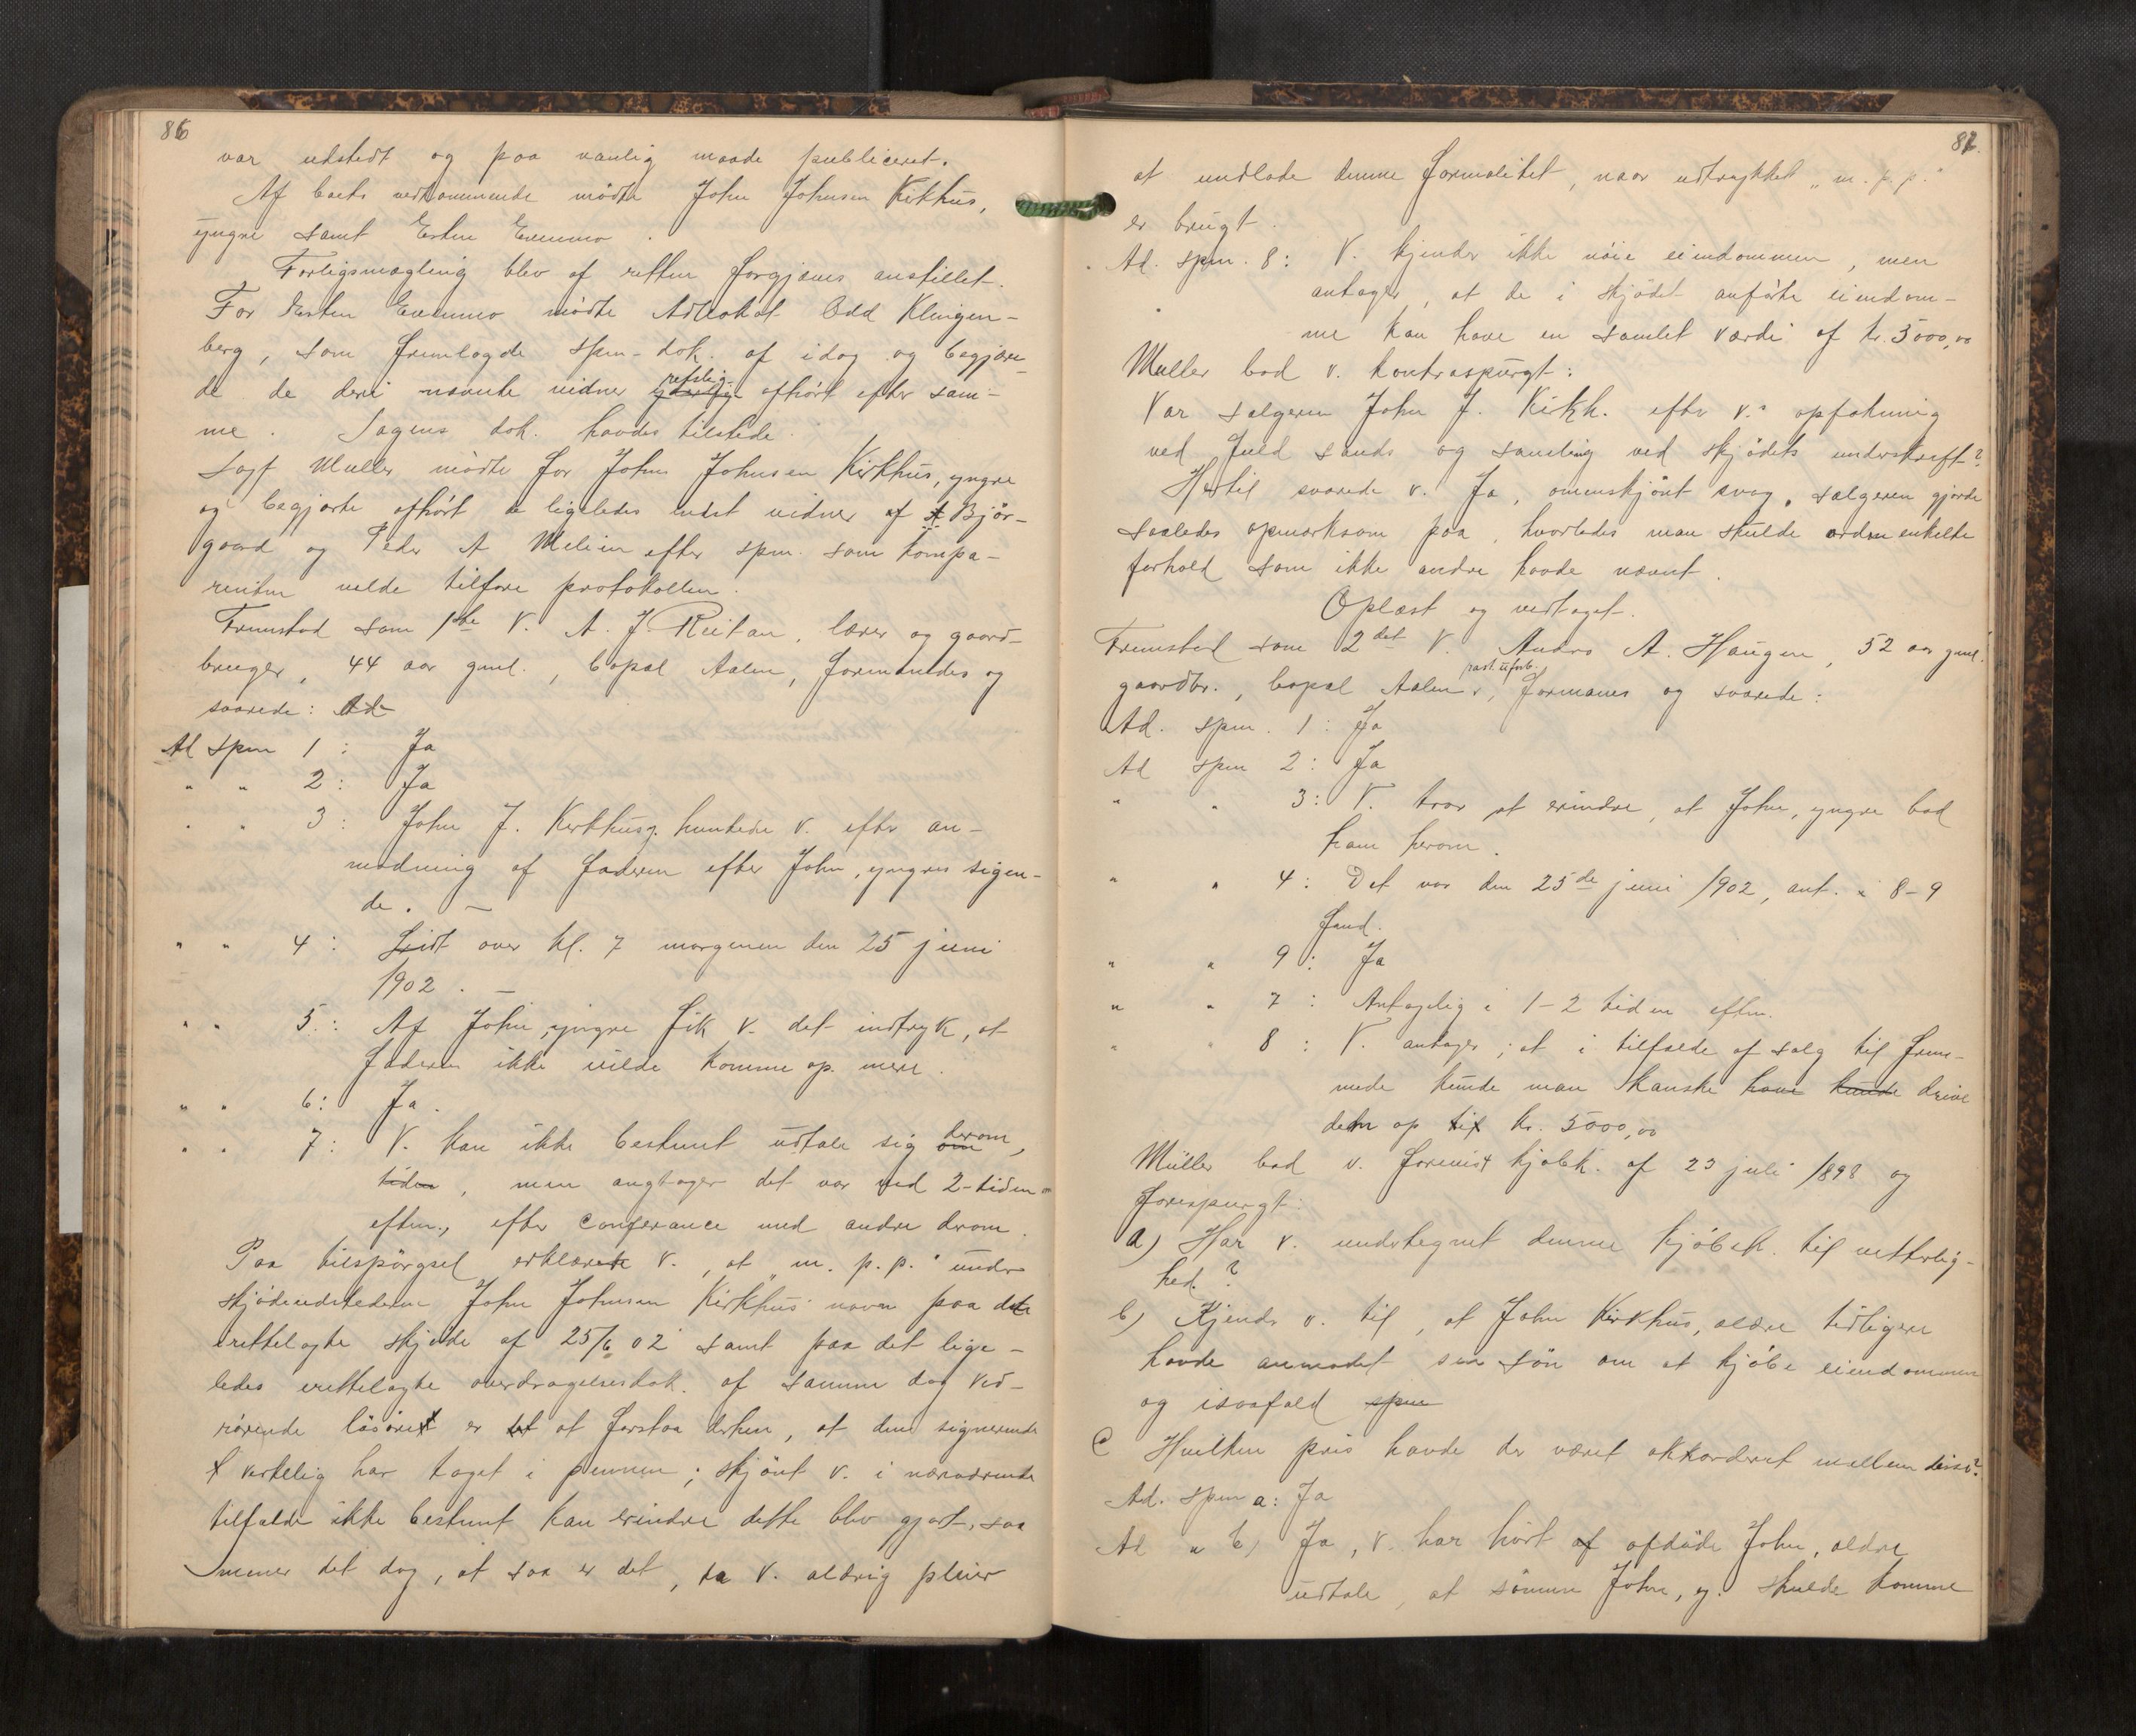 86
var udstedt og paa vanlig maade publiceret.
Af boets vedkommende mødte John Johnsen Kirkhus,
yngre samt Esten Evenmo.
Forligsmægling blev af retten forgjæves anstillet.
For Esten Evenmo mødte Advokat Odd Klingen-
berg, som fremlagde spm-dok. af idag og begjære-
de de deri nævnte vidner retslig afhørt efter sam-
me. Sagens dok. havdes tilstede.
Sagf Müller mødte for John Johnsen Kirkhus, yngre
og begjærte afhørt de ligeledes indst vidner af A Bjør-
gaard og Peder A Melien efter spm. som kompa-
renten vilde tilføre protokollen.
Fremstod som 1ste V. A. J. Reitan, lærer og gaard-
bruger, 44 aar gml., bopæl Aalen, formanedes og
svarede: Ad
Ad spm 1: Ja
" " 2: Ja
" " 3: John J. Kirkhus y. hentede v. efter an-
modning af faderen efter John, yngres sigen-
de. —
" " 4: Lidt over kl. 7 morgenen den 25 juni
1902. —
" " 5: Af John, yngre fik v. det indtryk, at
faderen ikke vilde komme op mere.
" " 6: Ja.
" " 7: V. kan ikke bestemt udtale sig om derom,
tiden, men angtager det var ved 2-tiden
eftm., efter conferance med andre derom.
Paa tilspørgsel erklærede V., at "m. p. p." under
skjødeudstederen John Johnsen Kirkhus' navn paa det
irettelagte skjøde af 25/6 02 samt paa det lige-
ledes irettelagte overdragelsesdok. af samme dag ved-
rørende løsøret er at forstaa derhen, at den signerende
virkelig har taget i pennen; skjønt v. i nærværende
tilfælde ikke bestemt kan erindre dette blev gjort, saa
mener det dog, at saa er det, da v. aldrig pleier
87.
at undlade denne formalitet, naar udtrykket "m. p. p."
er brugt.
Ad. spm. 8: V. kjender ikke nøie eiendommen, men
antager, at de i skjødet anførte eiendom-
me kan have en samlet værdi af kr. 5000,00
Müller bad v. kontraspurgt:
Var sælgeren John J. Kirkh. efter v.s opfatning
ved fuld sands og samling ved skjødets underskrift?
Hertil svarede v. Ja, omenskjønt svag. Sælgeren gjorde
saaledes opmærksom paa, hvorledes man skulde ordne enkelte
forhold som ikke andre havde nævnt.
Oplæst og vedtaget.
Fremstod som 2det V. Anders A. Haugen, 52 aar gml.
gaardbr., bopæl Aalen, formanes og svarede:
Ad. spm. 1: Ja
Ad spm 2: Ja
" " 3: V. tror at erindre, at John, yngre bad
ham herom.
" " 4: Det var den 25de juni 1902, ant. i 8-9
formd.
" " 9: Ja
" " 7: Antagelig i 1-2 tiden eftm.
" " 8: V. antager, at i tilfælde af salg til frem-
mede kunde man kanske have kunde drive
dem op til kr. 5000,00
Müller bad v. forevist kjøbek. af 23 juli 1898 og
forespurgt:
a) Har v. undertegnet denne kjøbek. til vitterlig-
hed?
b) Kjender v. til, at John Kirkhus, ældre tidligere
havde anmodet sin søn om at kjøbe eiendommen
og isaafald spm
C Hvilken pris havde der været akkorderet mellem disse?
Ad. spm a: Ja
Ad " b) Ja, v. har hørt af afdøde John, ældre
udtale, at sønnen John, y. skulde komme